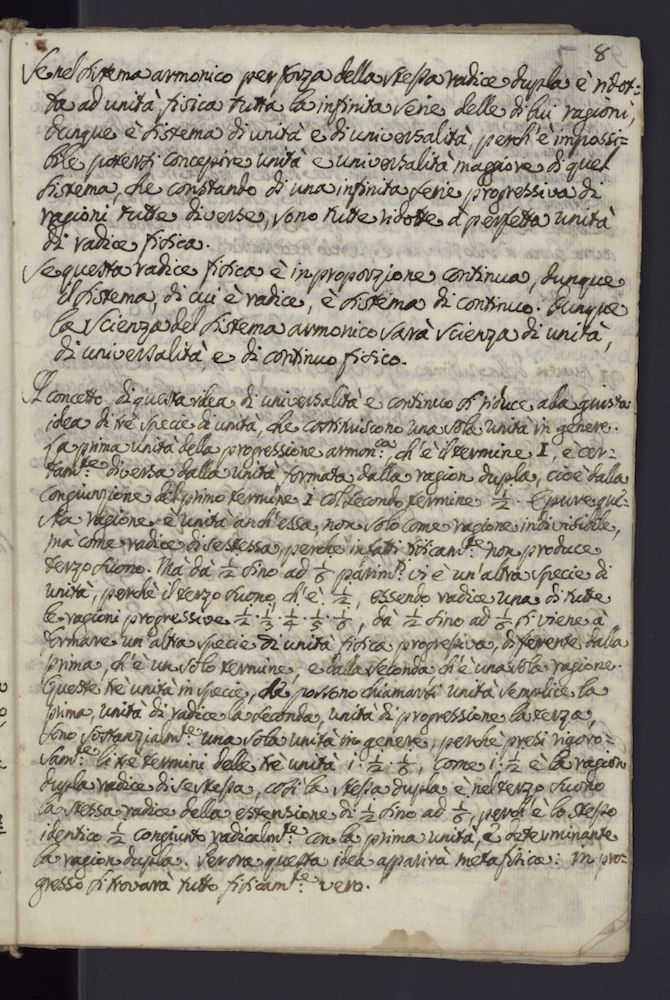 8
Se nel sistema armonico per forza della stessa radice dupla è ridot=
ta ad unità fisica tutta la infinita serie delle di lui ragioni,
dunque è sistema di unità e di universalità, perch'è impossi=
bile potersi concepire unità e universalità maggiore di quel
sistema, che constando di una infinita serie progressiva di
ragioni tutte diverse, sono tutte ridotte a perfetta unità
di radice fisica.
Se questa radice fisica è in proporzione continua, dunque
il sistema, di cui è radice, è sistema di continuo. Dunque
la scienza del sistema armonico sarà scienza di unità,
di universalità, e di continuo fisico.
Il concetto di questa idea di universalità e continuo si riduce alla giusta
idea di trè specie di unità, che costituiscono una sola unità in genere.
La prima unità della progressione armon.ca, ch'è il termine 1, è cer=
tam.te diversa dalla unità formata dalla ragion dupla, cioè dalla
congiunzione del primo termine 1 col secondo termine 1/2. Eppure que=
sta ragione è unità anch'essa, non solo come ragione indivisibile,
mà come radice di se stessa, perche infatti fisicam.te non produce
terzo suono. Mà dà 1/2 sino ad 1/6 parim.te vi è un'altra specie di
unità, perchè il terzo suono, ch'è 1/2, essendo radice una di tutte
le ragioni progressive 1/2. 1/3. 1/4. 1/5. 1/6, dà 1/2 sino ad 1/6 si viene à
formare un'altra specie di unità fisica progressiva, differente dalla
prima, ch'è un solo termine, e dalla seconda ch'è una sola ragione.
Queste trè unità in specie, che possono chiamarsi unità semplice la
prima, unità di radice la seconda, unità di progressione la terza,
sono sostanzialm.te una sola unità in genere, perchè presi rigoro=
sam.te li trè termini delle trè unità 1. 1/2. 1/6, come 1. 1/2 è la ragion
dupla radice di se stessa, così la stessa dupla è nel terzo suono
la stessa radice della estensione di 1/2 sino ad 1/6, perch'è lo stesso
identico 1/2 congiunto radicalm.te con la prima unità, e determinante
la ragion dupla. Per ora questa idea apparirà metafisica: in pro=
gresso si trovarà tutto fisicam.te vero.